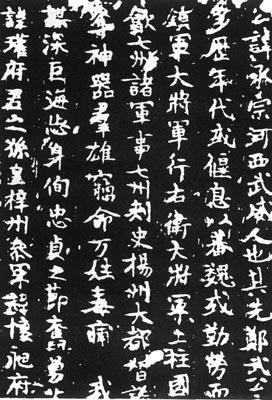 公諱承宗河西武威人也其先鄭武公
多歷年代或偃息以蕃魏或勤勞而
鎮軍大將軍行右衛大將軍上柱國
歙七州諸軍事七州刺史楊州大都督諸
神器羣雄竊命万姓毒痡我
深巨海忘身徇忠貞之節奮勇
諱瓘府君之孫皇梓州參軍諱懷肥府